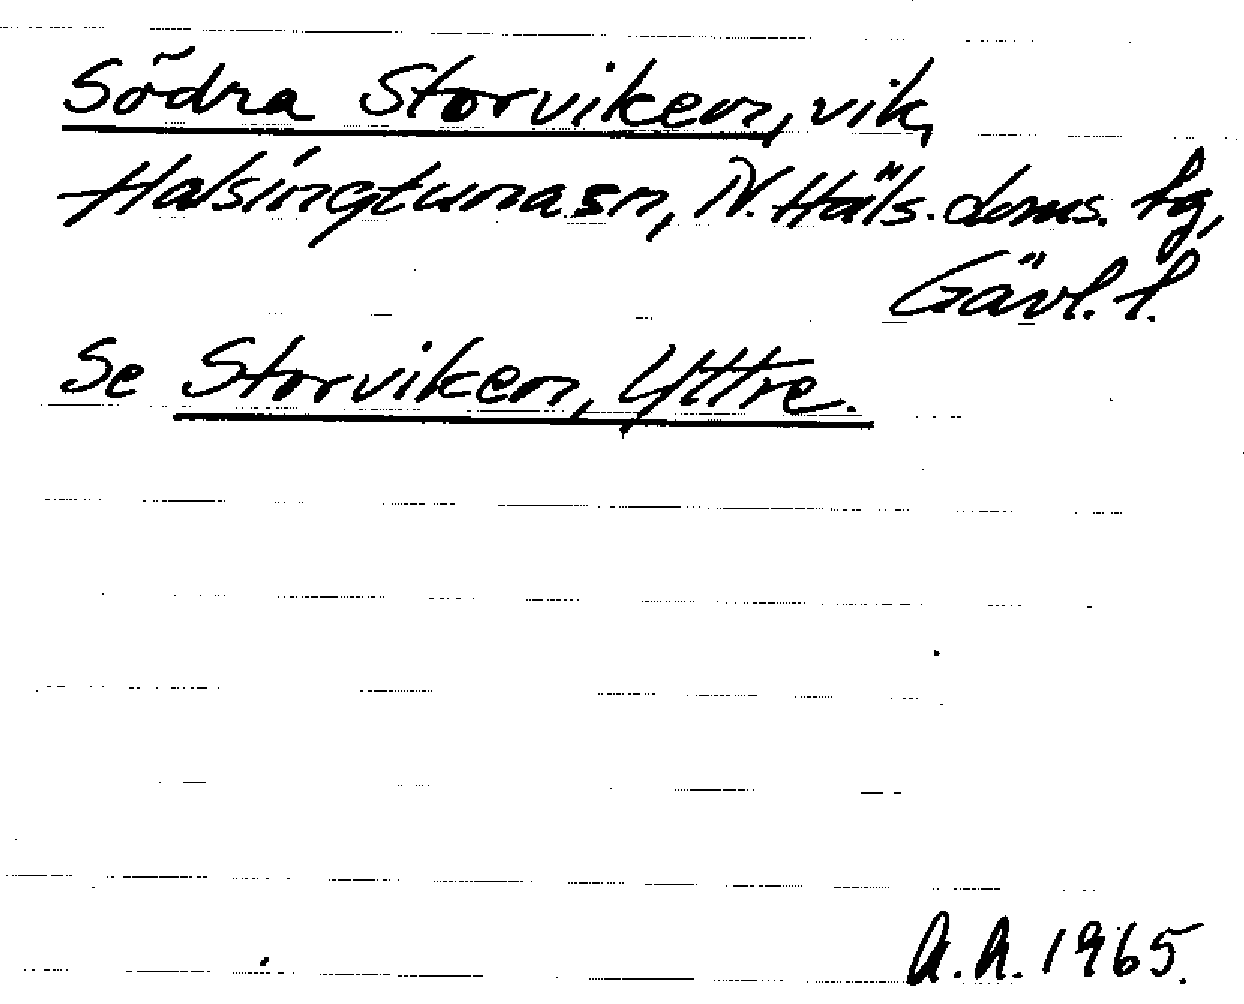 Södra Storviken, vik,
Halsingtuna sn, N. Häls. doms. tg,
Gävl. l.
Se Storviken, Yttre.
A.A. 1965.